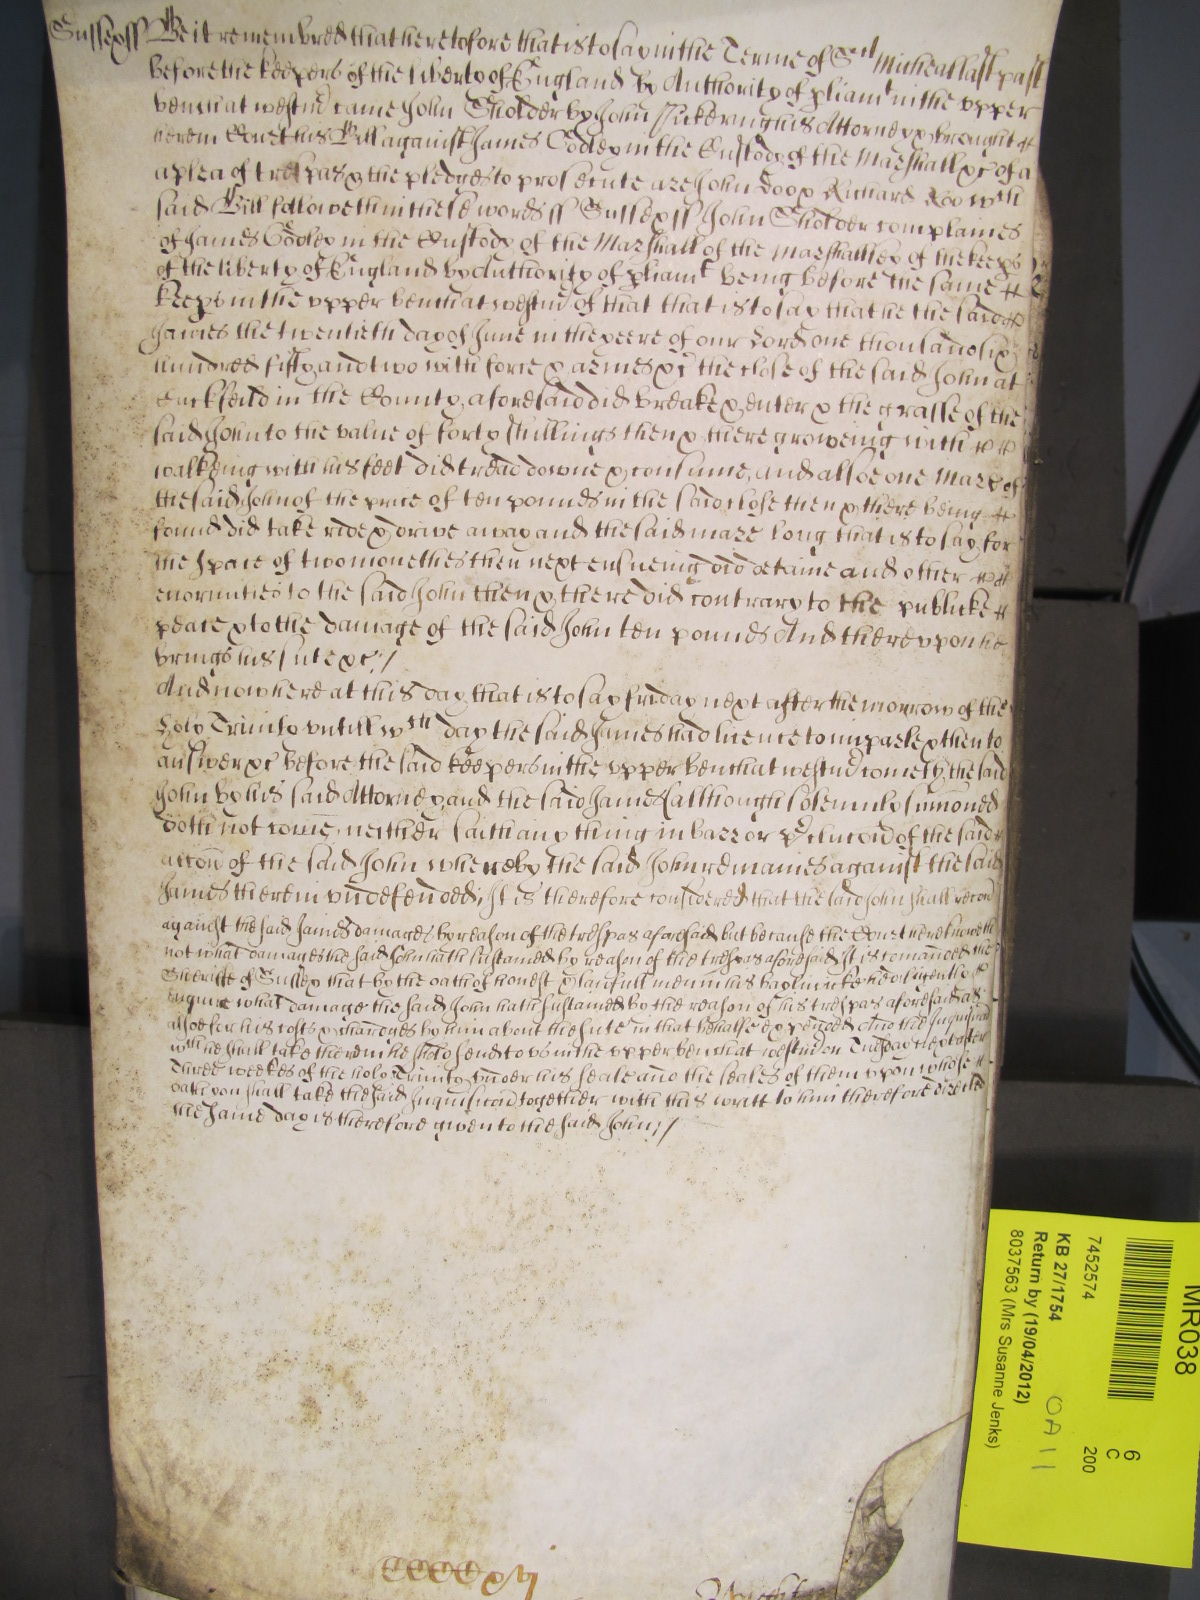 Sussex ss Be it remembred that heretofore that is to say in the Terme of Sct Micheall last past
before the keepers of the liberty of England by Authority of pliamt in the vpper
bench at westm came John Sholder by John Pickering his Attorney & brought
herein Court his Bill against James Codley in the Custody of the Marshall &c of a
a plea of trespas & the pledges to prosecute are John Doo & Richard Roo wch
said Bill followeth in these words ss Sussex ss John Sholder complaines
of James Codley in the Custody of the Marshall of the marshallsey of the keeps
of the liberty of England by Authority of pliamt being before the same
keeps in the vpper bench at westm of that that is to say that he the said
James the twentieth day of June in the yeere of our Lord one thousand six
hundred fifty and two with force & armes &c the close of the said John at
Cuckfeild in the County aforesaid did breake & enter & the grasse of the
said John to the value of forty shillings then & there groweing with
walkeing with his feet did tread downe & consume, and alsoe one Mare of
the said John of the price of ten pounds in the said close then & there being
found did take ride & drive away and the said mare long that is to say for
the space of two monethes then next ensueing did detaine and other
enormities to the said John then & there did contrary to the publicke
peace & to the damage of the said John ten pounds And therevpon he
brings his sute &c /
And now here at this day that is to say friday next after the morrow of the
holy Trinity vntill wch day the said James had licence to imparle & then to
answer &c before the said keepers in the vpper bench at westm cometh the said
John by his said Attorney and the said James (although solemnly sumoned
doth not come neither saith any thing in barr or of the said
accon of the said John whereby the said John remaines against the said
James therein vndefended; It is therefore considered that the said John shall recou
against the said James damages by reason of the trespas aforesaid but because the Court here knoweth
not what damages the said John hath sustained by reason of the trespas aforesaid It is comanded the
Sheriffe of Sussex that by the oath of honest & lawfull men in his bayliwicke he diligently
enquire what damage the said John hath sustained by the reason of his trespas aforesaid as
alsoe for his costs & chardges by him about the sute in that behalfe expended And the Inquisicon
wch he shall take therein he send to vs in the vpper bench at westm on Tuesday next after
Three weekes of the holy Trinity vnder his seale and the seales of them vpon whose
oath you shall take the said Inquisicon together with this writt to him therefore directed
the same day is therefore given to the said John; /
MR038
6
C
200
7452574
KB 27/1754
Return by (19/04/2012)
8037563 (Mrs Susanne Jenks)
OA 11